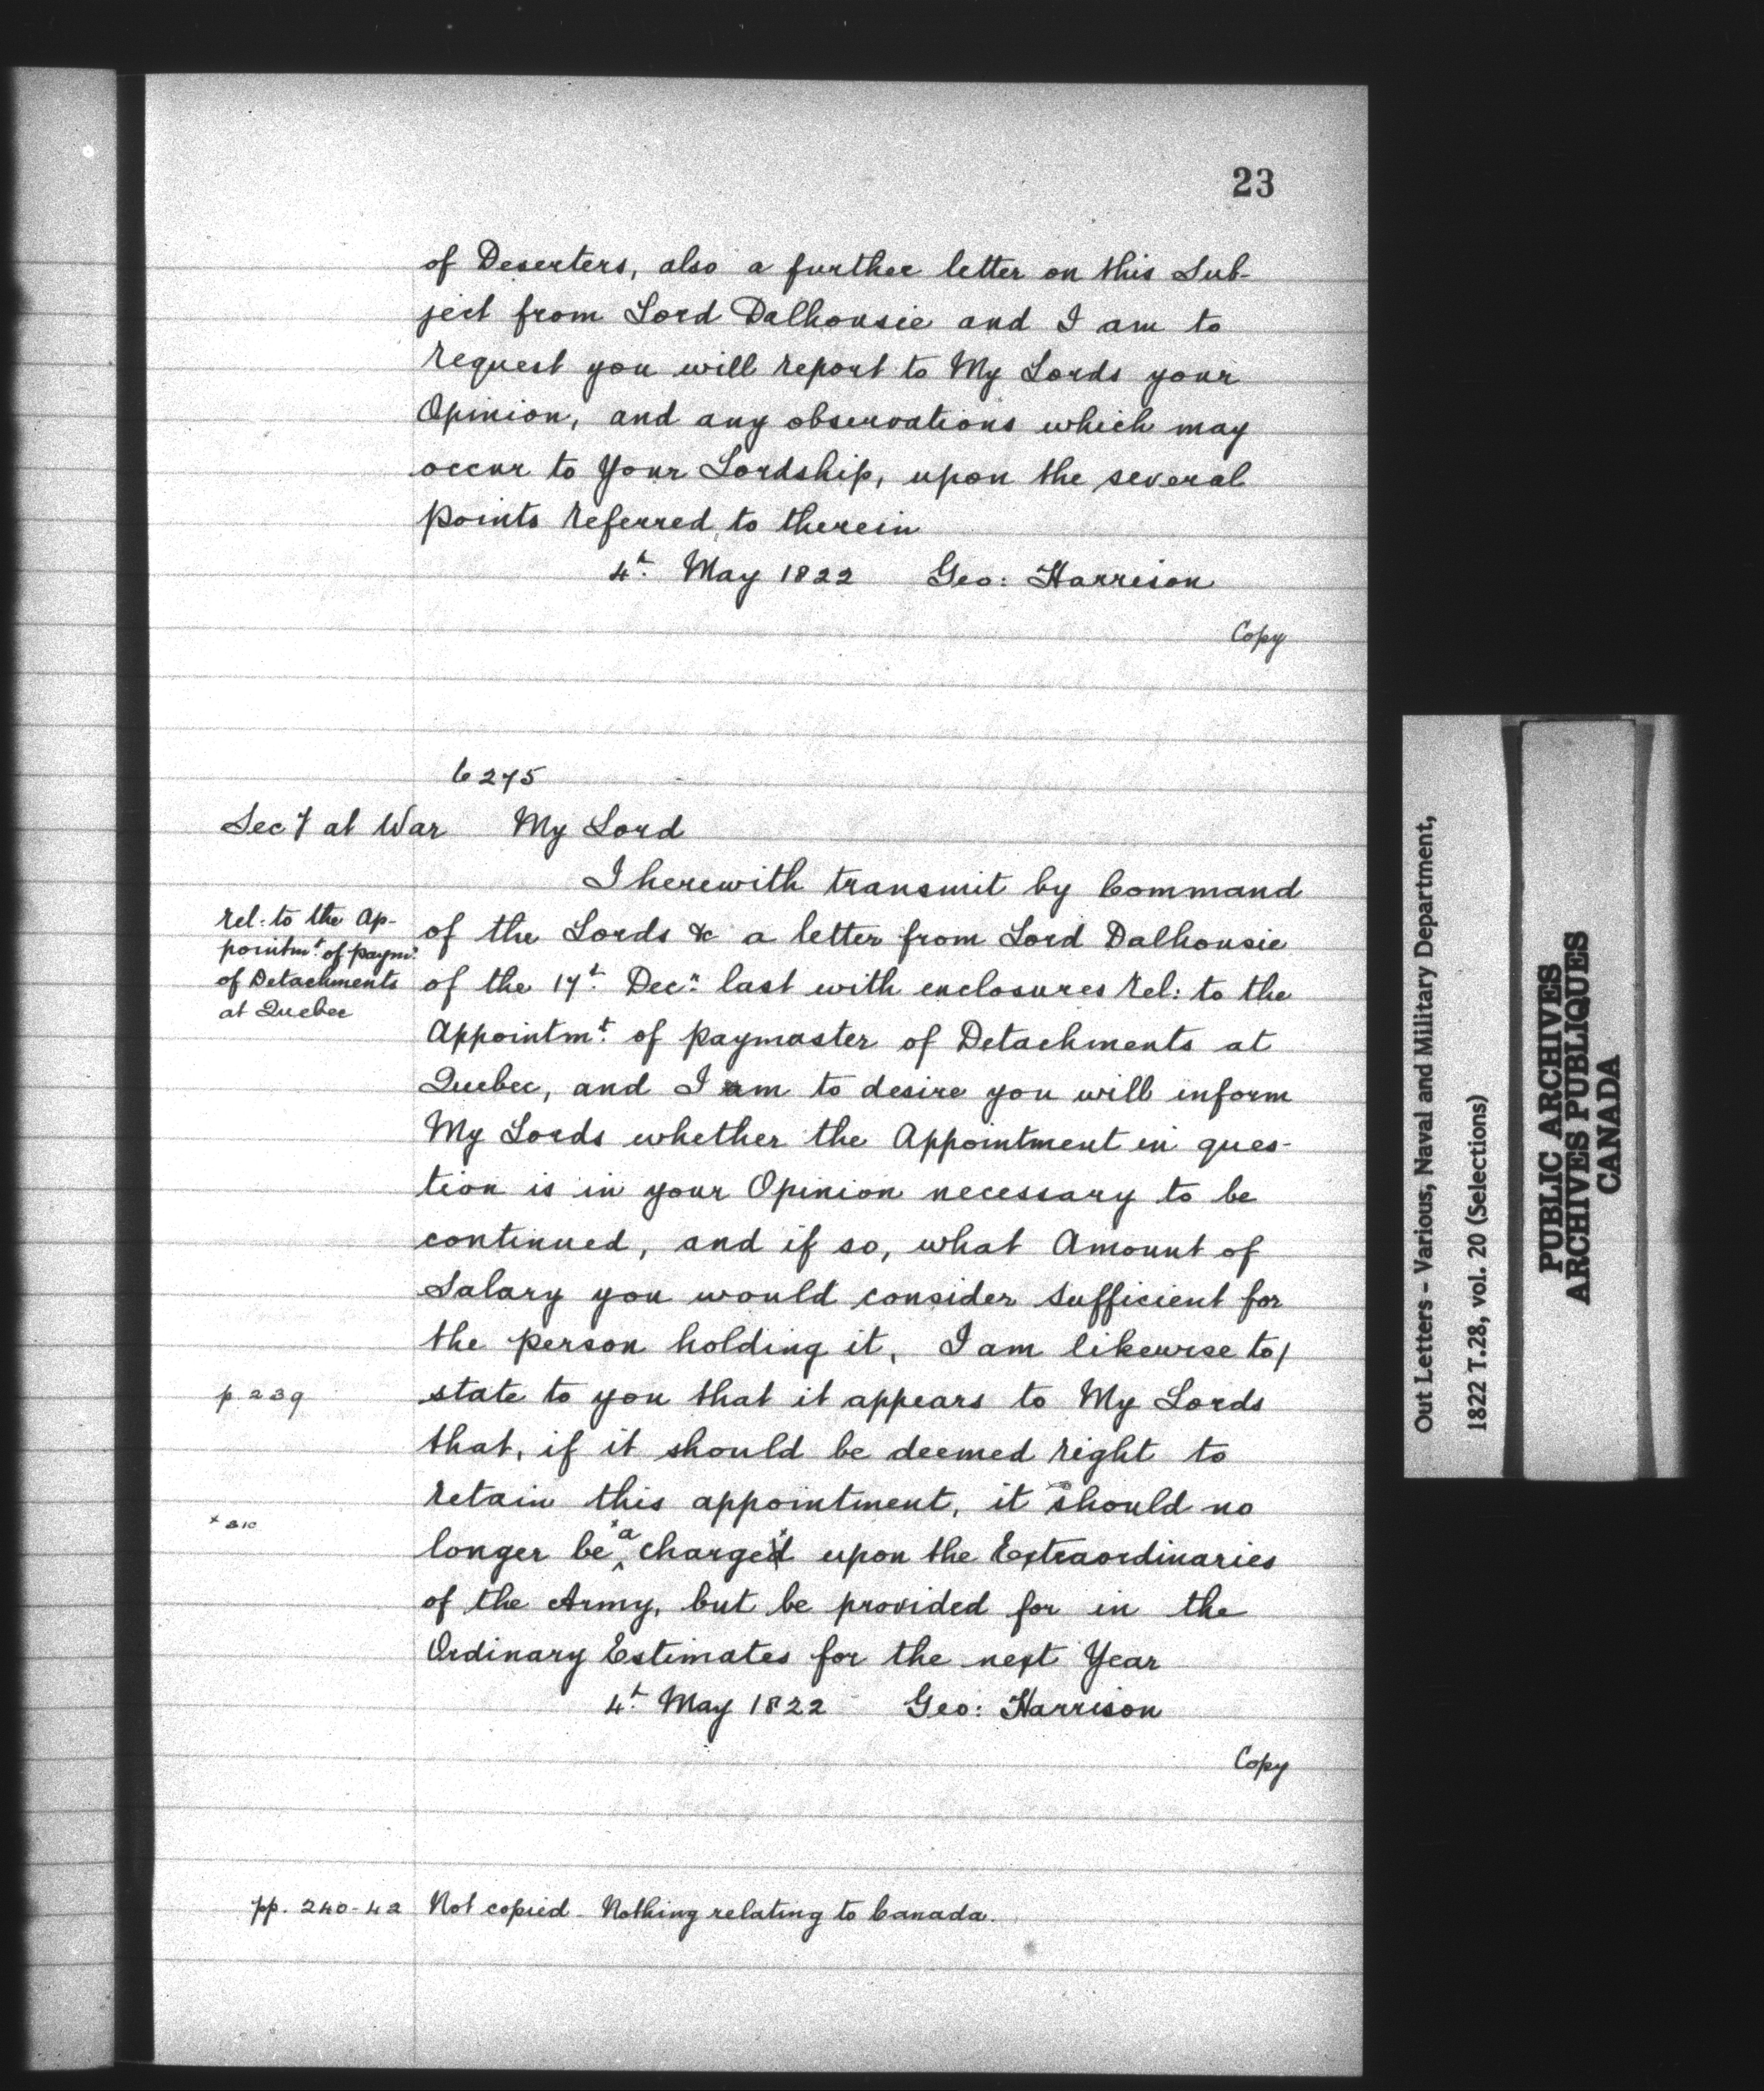 23
of Deserters, also a further letter on this Sub-
ject from Lord Dalhousie and I am to
request you will report to My Lords your
Opinion, and any observations which may
occur to Your Lordship, upon the several
points referred to therein
4t. May 1822 Geo: Harrison
Copy
6275
Secy at War My Lord
I herewith transmit by Command
rel: to the Ap-
pointmt. of paymr.
of Detachments
at Quebec
of the Lords &c a letter from Lord Dalhousie
of the 17t. Decr. last with enclosures rel: to the
Appointmt. of paymaster of Detachments at
Quebec, and I am to desire you will inform
My Lords whether the Appointment in ques-
tion is in your Opinion necessary to be
continued, and if so, what Amount of
Salary you would consider sufficient for
the person holding it, I am likewise to/
p. 239
state to you that it appears to My Lords
that, if it should be deemed right to
retain this appointment, it should no
longer be a charged upon the Extraordinaries
of the Army, but be provided for in the
Ordinary Estimates for the next Year
4t. May 1822 Geo: Harrison
Copy
pp. 240-42 Not copied - Nothing relating to Canada.
Out Letters - Various, Naval and Military Department,
1822 T.28, vol. 20 (Selections)
PUBLIC ARCHIVES
ARCHIVES PUBLIQUES
CANADA